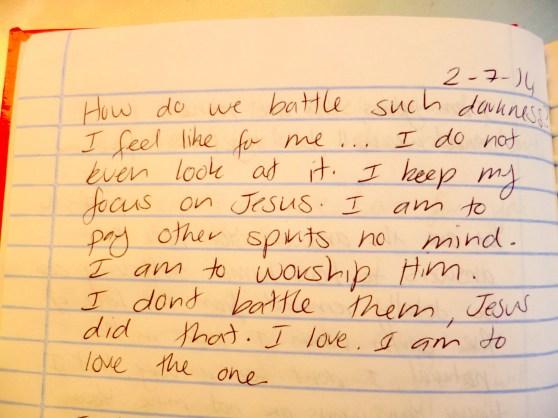 2-7-14
How do we battle such darkness?
I feel like for me... I do not
even look at it. I keep my
focus on Jesus. I am to
pay other spirits no mind.
I am to worship Him.
I dont battle them, Jesus
did that. I love. I am to
love the one